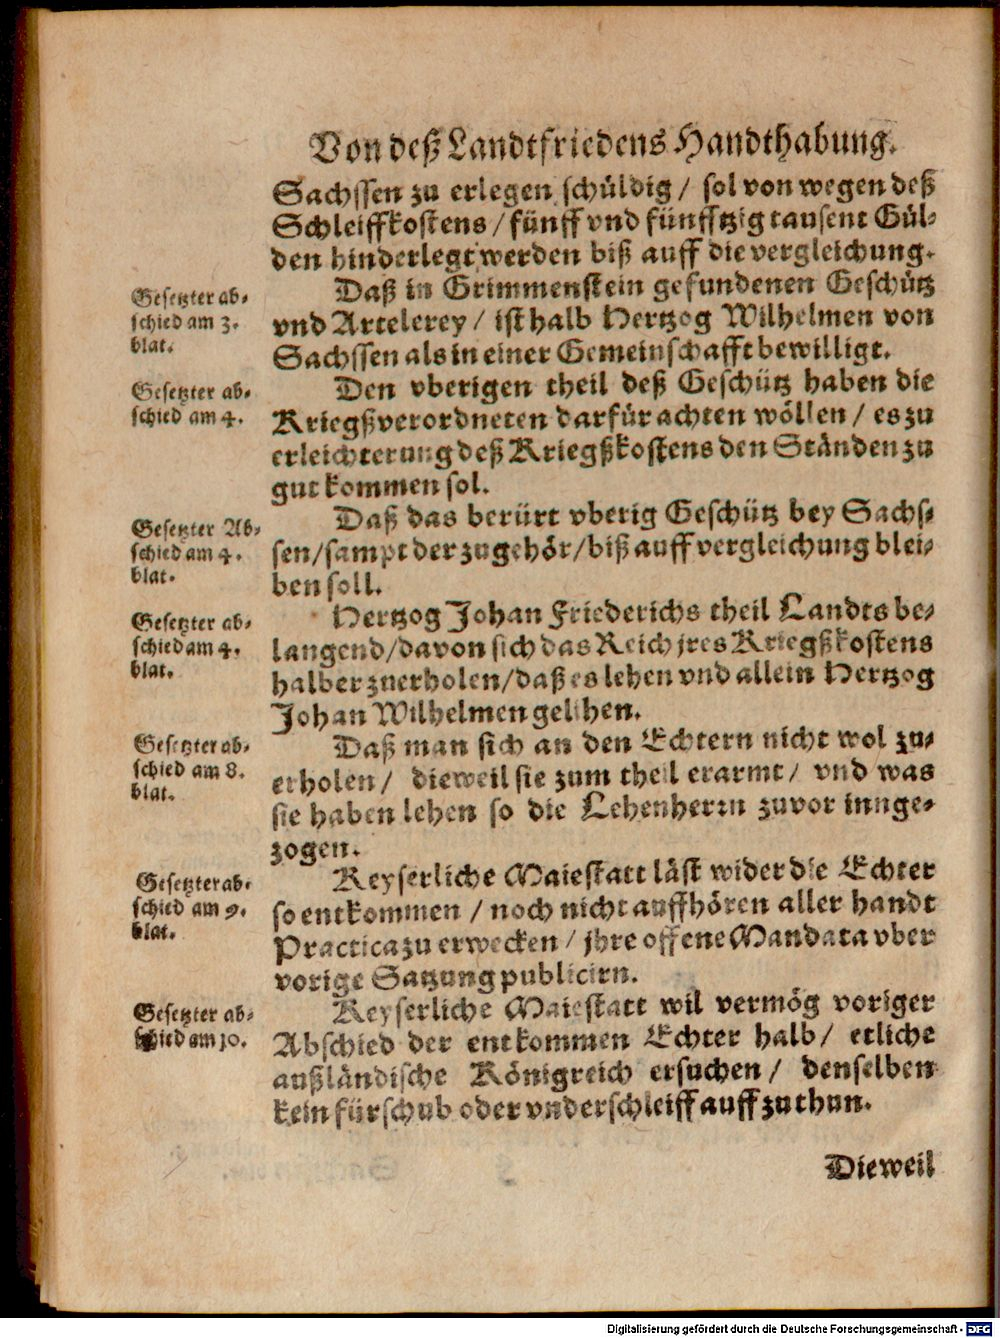 Von deß Landtfriedens Handthabung.
Sachssen zu erlegen schüldig / sol von wegen deß
Schleiffkostens / fünff vnd fünfftzig tausent Gül⸗
den hinderlegt werden biß auff die vergleichung.
Gesetzter ab⸗
schied am 3.
blat.
Daß in Grimmenstein gefundenen Geschütz
vnd Artelerey / ist halb Hertzog Wilhelmen von
Sachssen als in einer Gemeinschafft bewilligt.
Gesetzter ab⸗
schied am 4.
Den vberigen theil deß Geschütz haben die
Kriegßverordneten darfür achten wöllen / es zu
erleichterung deß Kriegßkostens den Ständen zu
gut kommen sol.
Gesetzter Ab⸗
schied am 4.
blat.
Daß das berürt vberig Geschütz bey Sachs⸗
sen/sampt der zugehör/biß auff vergleichung blei⸗
ben soll.
Gesetzter ab⸗
schied am 4.
blat.
Hertzog Johan Friederichs theil Landts be⸗
langend/davon sich das Reich jres Kriegßkostens
halber zuerholen/daß es lehen vnd allein Hertzog
Johan Wilhelmen gelihen.
Gesetzter ab⸗
schied am 8.
blat.
Daß man sich an den Echtern nicht wol zu⸗
erholen / dieweil sie zum theil erarmt / vnd was
sie haben lehen so die Lehenherrn zuvor innge⸗
zogen.
Gesetzter ab⸗
schied am 9.
blat.
Keyserliche Maiestatt läst wider die Echter
so entkommen / noch nicht auffhören aller handt
Practica zu erwecken / jhre offene Mandata vber
vorige Satzung publicirn.
Gesetzter ab⸗
schied am 10.
Keyserliche Maiestatt wil vermög voriger
Abschied der entkommen Echter halb / etliche
außländische Königreich ersuchen / denselben
kein fürschub oder vnderschleiff auff zuthun.
Dieweil
Digitalisierung gefördert durch die Deutsche Forschungsgemeinschaft - DFG